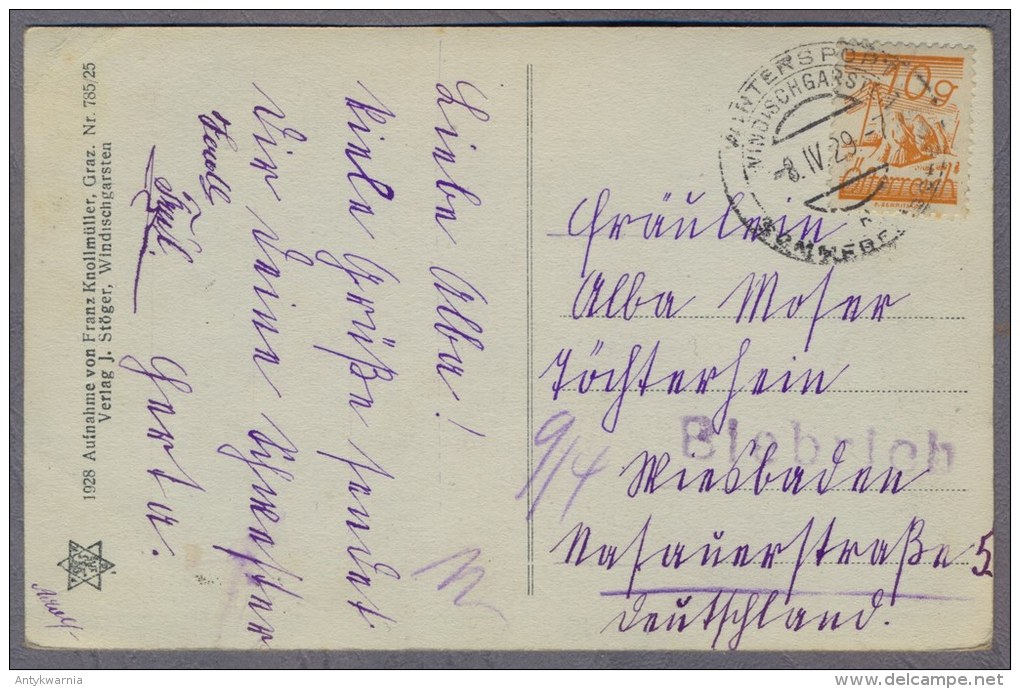 Liebe Alba!
Viele Grüße sendet
Dir Deine Schwester
Gerta.
1928 Aufnahme von Franz Knollmüller, Graz. Nr. 785/25
Verlag J. Stöger, Windischgarsten
10g
WINTERSPORT
WINDISCHGARSTEN
8.IV.29
Fräulein
Alba Moser
Töchterheim
Biebrich
9/4
Wiesbaden
Nasauerstraße 5
Deutschland.
Antykwarnia
delcampe.net